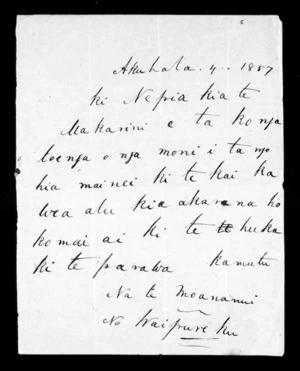 Akuhata. 4. 1857
ki Nepia kia te
Makarini e ta ko nga
toenga o nga moni i ta no
hia mai nei ki te kai ka
wea atu kia akarana ho
ko mai ai ki te huka
ki te parawa kamutu
Na te Moananui
No Waipureku